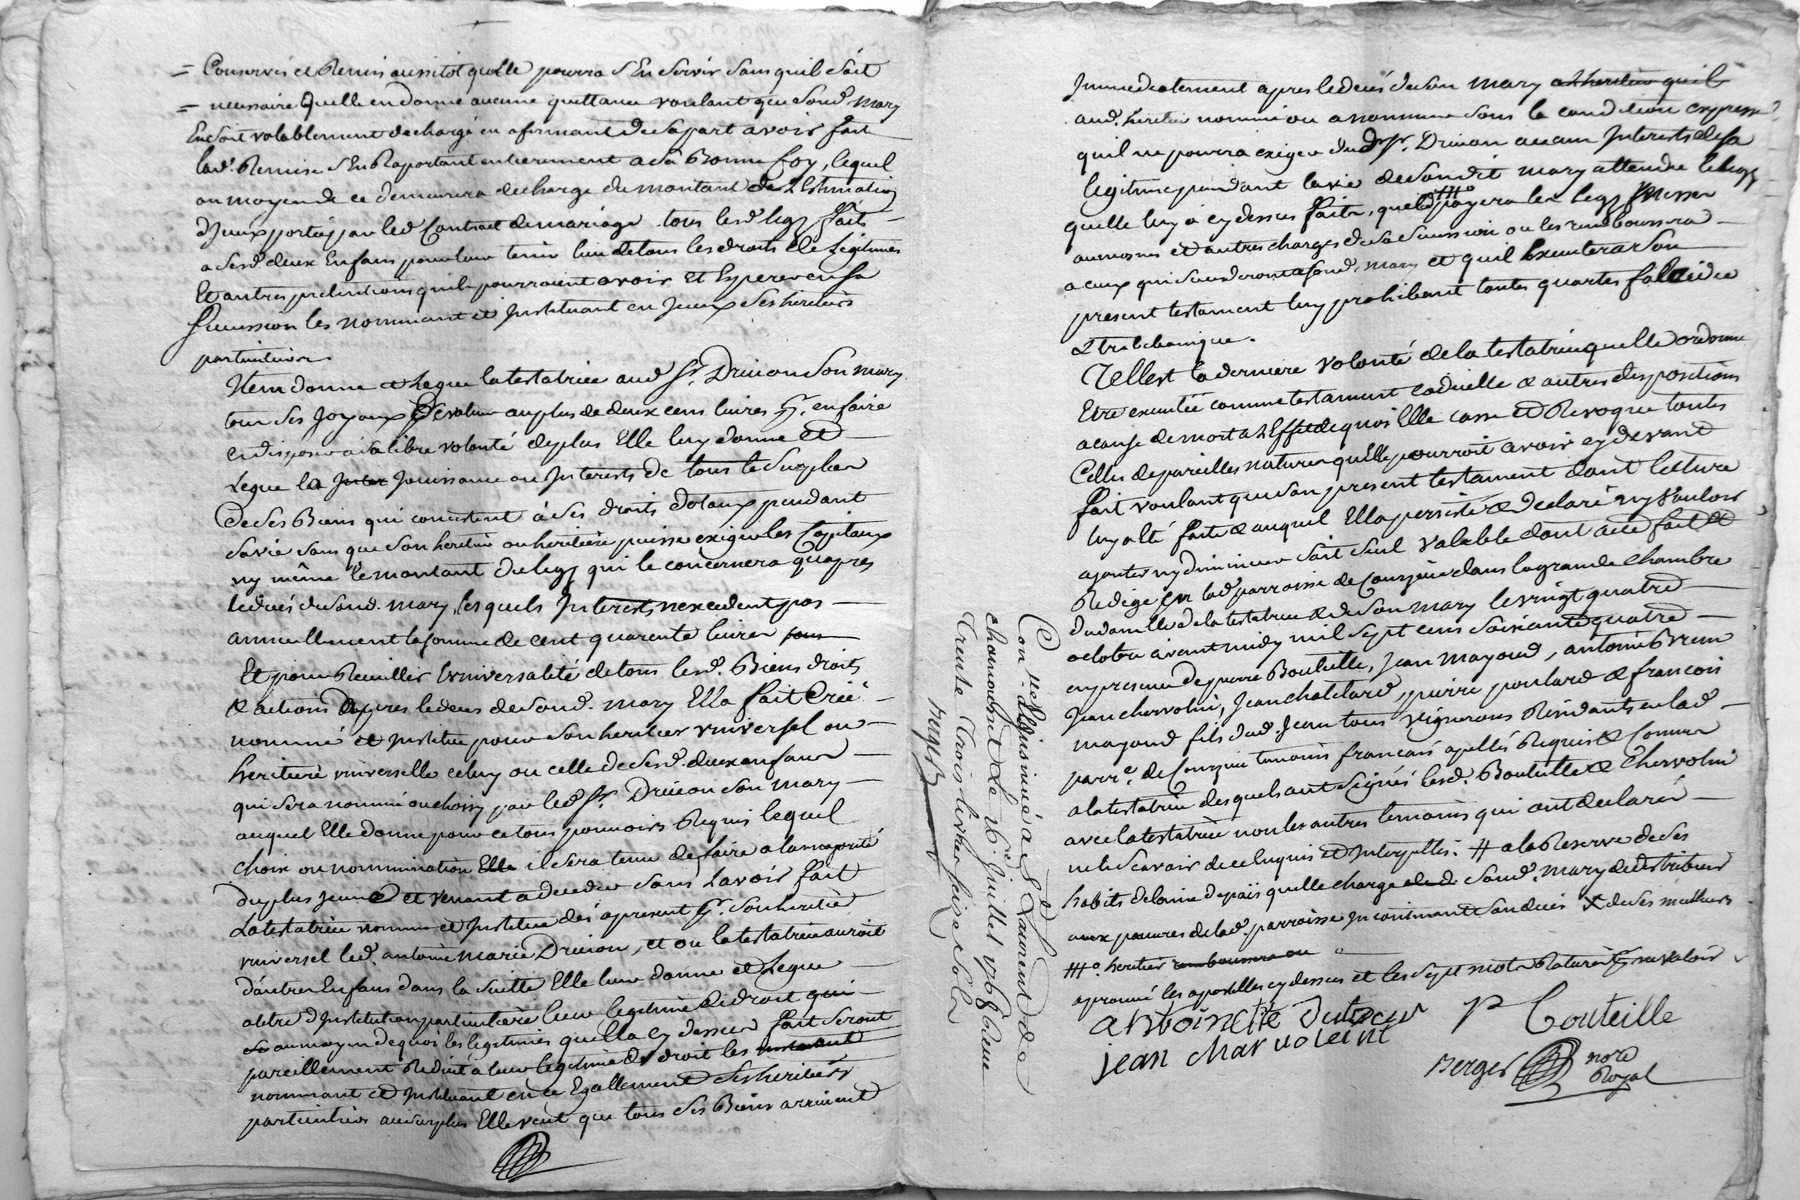 = Conservés et Remis aussitot quelle pourra s'En servir sans quil soit
= necessaire quelle en donne aucune quittance voulant que sond. mary
En soit valablement dechargé en afirmant de sa part avoir fait
lad. Remise s'En Raportant entierement a sa Bonne foy, lequel
au moyen de ce demeurera decharge du montant de L'Estimation
d'jceux portée par led. Contract de mariage. tous lesd. legs faits
a sesd. deux Enfans pour leur tenir lieu de tous les droits de Legitimes
Et autres pretentions quils pourroient avoir et Esperer en sa
succession les nommant et Instituant en jceux ses heritiers
particuliers
Item donne et Legue la testatrice aud. Sr. Drivon son mary
tous ses Joyaux de valeur au plus de deux cens livres pr. en faire
et disposer à sa libre volonté de plus Elle luy donne et
Legue la Jouissance ou Interests de tous le surplus
de ses Biens qui consistent à ses droits dotaux pendant
sa vie sans que son heritier ou heritière puisse exiger les Capitaux
ny même le montant du legs qui le concernera qu'apres
le decés de sond. mary, lesquels Interests n'excedent pas
annuellement la somme de cent quarente livres
Et pour Recuillir l'universalité de tous lesd. Biens droits
& actions apres le deces de sond. mary Ella fait Créé
nommé et Institue pour son heritier universel ou
heritiere universelle celuy ou celle de sesd. deux enfans
qui sera nommé ou choisy par led. Sr. Drivon son mary
auquel Elle donne pour ce tous pouvoirs Requis lequel
choix ou nommination Elle il sera tenu de faire a la majorité
du plus jeune et venant a deceder sans l'avoir fait
La testatrice nomme et Institue dés apresent pr. son heritier
universel led. antoine marie Drivon, et ou la testatrice auroit
d'autres Enfans dans la suitte Elle leur donne et Legue
atitre d'Institution particulière leur legitime de droit qui
au moyen de quoi les legitimes quella cy dessus fait seront
pareillement Reduit à leur legitime de droit les
nommant et Instituant en ce Egallement ses heritiers
particuliers au surplus Elle veut que tous ses Biens arrivent
Immediatement apres le decés de son mary a l'heritier quil
aud. heritier nommé ou a nommer sous la condition expresse
quil ne pourra exiger dud. Sr. Drivon aucun Interests de sa
legitime pendant la vie de sondit mary attendu le legs
quelle luy a cy dessus faits, quel payera les Legs Messes
aumosnes et autres charges de sa succession ou les remboursera
a ceux qui en auront a sond. mary et quil Executera son
present testament luy prohibant toutes quartes falcidie
& trebelianique.
Telle est la derniere volonté de la testatrice quelle ordonne
Etre executée comme testament codicille & autres dispositions
a cause de mort a l'Effet de quoi Elle casse et Revoque toutes
Celles de pareilles natures quElle pourroit avoir cy devant
fait voulant que son present testament dont lecture
luy a été faite & auquel Ella persisté & declaré ny vouloir
ajouter ny diminuer soit seul valable dont acte fait et
Redigé en lad. parroisse de Couzieu dans la grande chambre
du domicille de la testatrice & de son mary le vingt quatre
octobre avant midy mil sept cens soixante quatre
en presence de pierre Bouteille, Jean mayoud, antoine Brun
Jean chervolin, Jean chatelard, pierre poulard & francois
mayoud fils dud. Jean tous vignerons Residants en lad.
parr.e de Couzieu temoins francais apellés Requis & Connus
a la testatrice desquels ont signés lesd. Bouteille & Chervolin
avec la testatrice non les autres temoins qui ont declarés
ne le scavoir de ce Enquis et Interpellés. # a la Reserve de ses
habits de laine du païs quelle charge sond. mary de distribuer
aux pauvres de lad. parroisse Incontinant son decés X de ses meilleurs
###. heritier remboursera ou
aprouvé les apostilles cydessus et les sept mots Raturés pr. ne valoir
antoinette duteur P Bouteille
jean charvolein
Berger nore
Royal
Con.lle & Insinué a St Laurent de
chamousset Le 26 Juillet 1768 Receu
Trente Trois livres seize sols
Berger